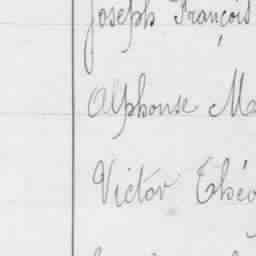 Joseph François
Alphonse Ma
Victor Théo